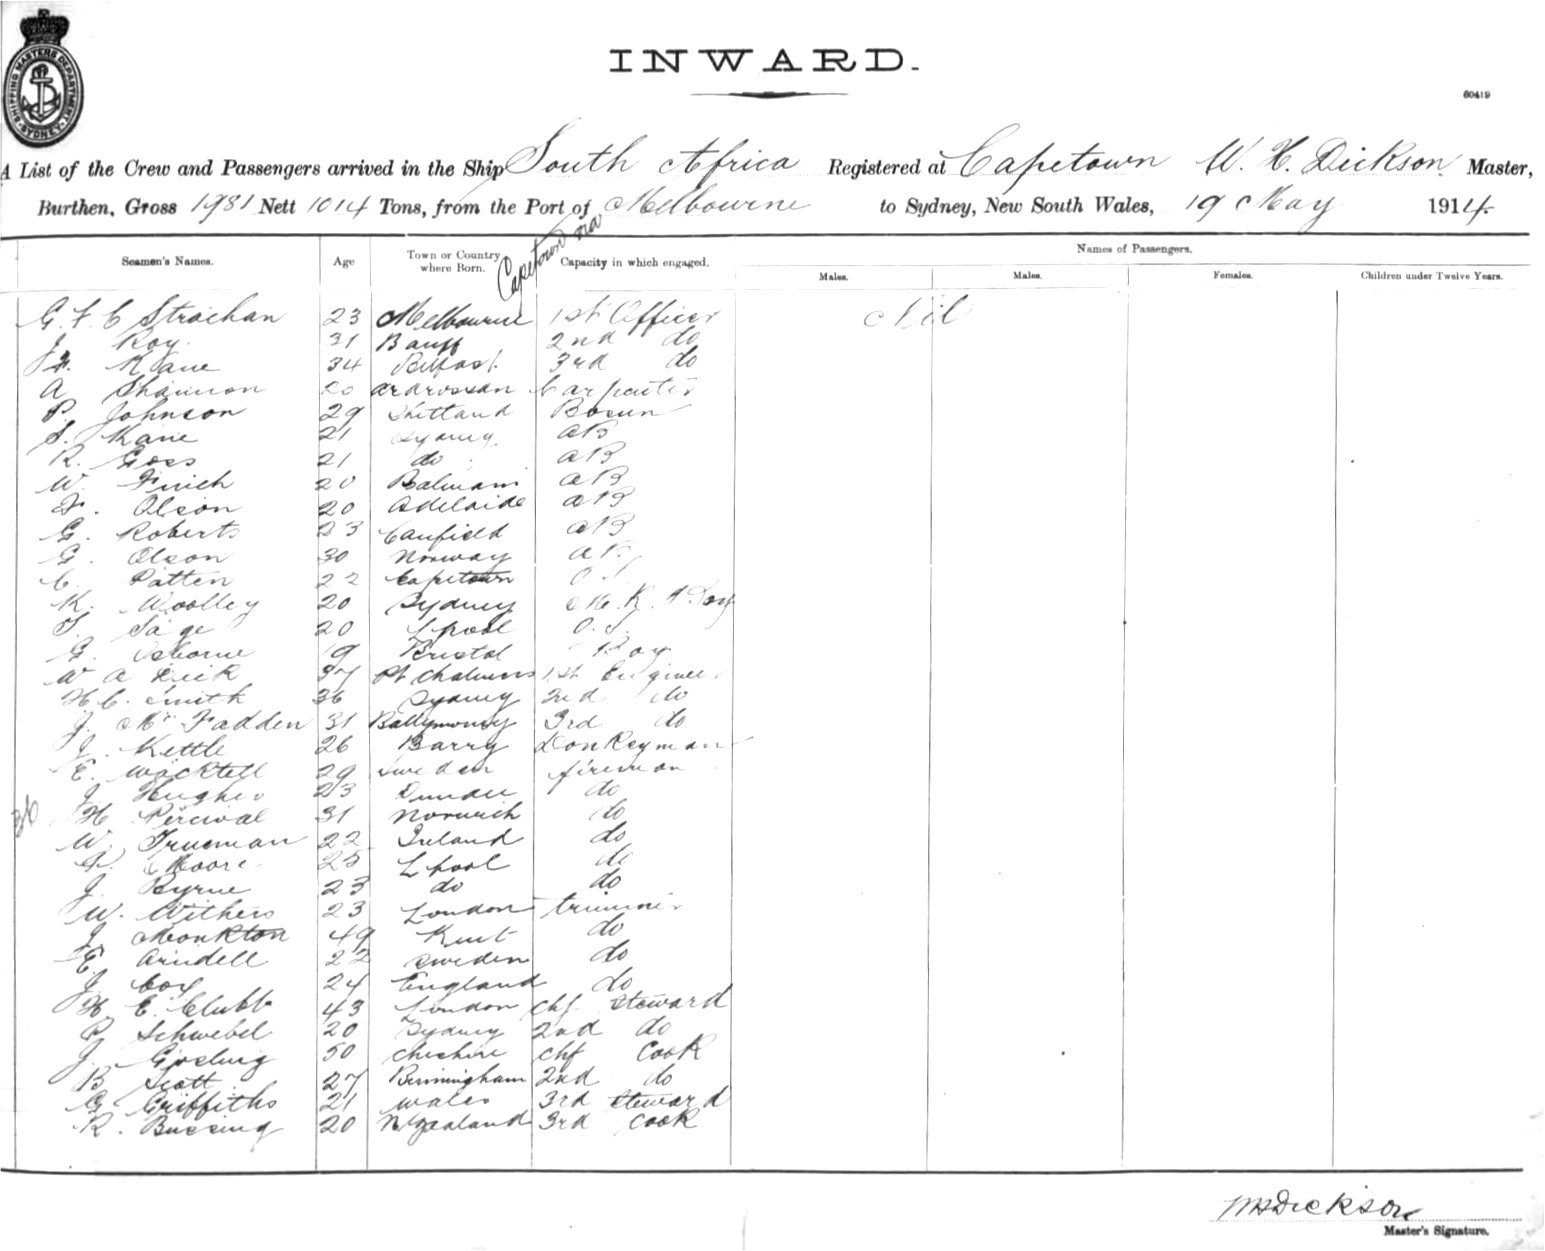 SHIPPING MASTERS DEPARTMENT
SYDNEY
INWARD.
60419
A List of the Crew and Passengers arrived in the Ship South Africa Registered at Capetown W. H. Dickson Master,
Burthen, Gross 1981 Nett 1014 Tons, from the Port of Capetown via Melbourne to Sydney, New South Wales, 19 May 1914.
Seamen's Names. Age Town or Country where Born. Capacity in which engaged. Names of Passengers.
Males. Males. Females. Children under Twelve Years.
G. F. C Strachan 23 Melbourne 1st Officer Nil
J. Roy 31 Banff 2nd do
Kane 34 Belfast 3rd do
A Shannon 20 Ardrossan Carpenter
P. Johnson 29 Shetland Bosun
S. Kane 21 Sydney AB
R. Goss 21 do AB
W. Finch 20 Balmain AB
F. Olson 20 Adelaide AB
G. Roberts 23 Caufield AB
G. Olson 30 Norway AB
C. Patten 22 Capetown O.S
K. Woolley 20 Sydney
T. Sage 20 Lpool O.S.
G. Osborne 19 Bristol Boy
W A 37 Pt Chalmers 1st Engineer
H. C. Smith 36 Sydney 2nd do
J. McFadden 31 Ballymoney 3rd do
J. Kettle 26 Barry Donkeyman
E. Wacktell 29 Sweden fireman
J. Hughes 23 Dundee do
36
H Percival 31 Norwich do
W. Trueman 22 Ireland do
Moore 25 Lpool do
J. Byrne 23 do do
W. Withers 23 London trimmer
J. Monkton 49 Kent do
E. Arndell 22 Sweden do
J. Cox 24 England do
H. E. Clubb 43 London chf steward
P. Schwebel 20 Sydney 2nd do
J. Gosling 50 Cheshire chf Cook
B Scott 27 Birmingham 2nd do
G. Griffiths 21 Wales 3rd steward
R. Bussing 20 N Zealand 3rd Cook
WHDickson
Master's Signature.